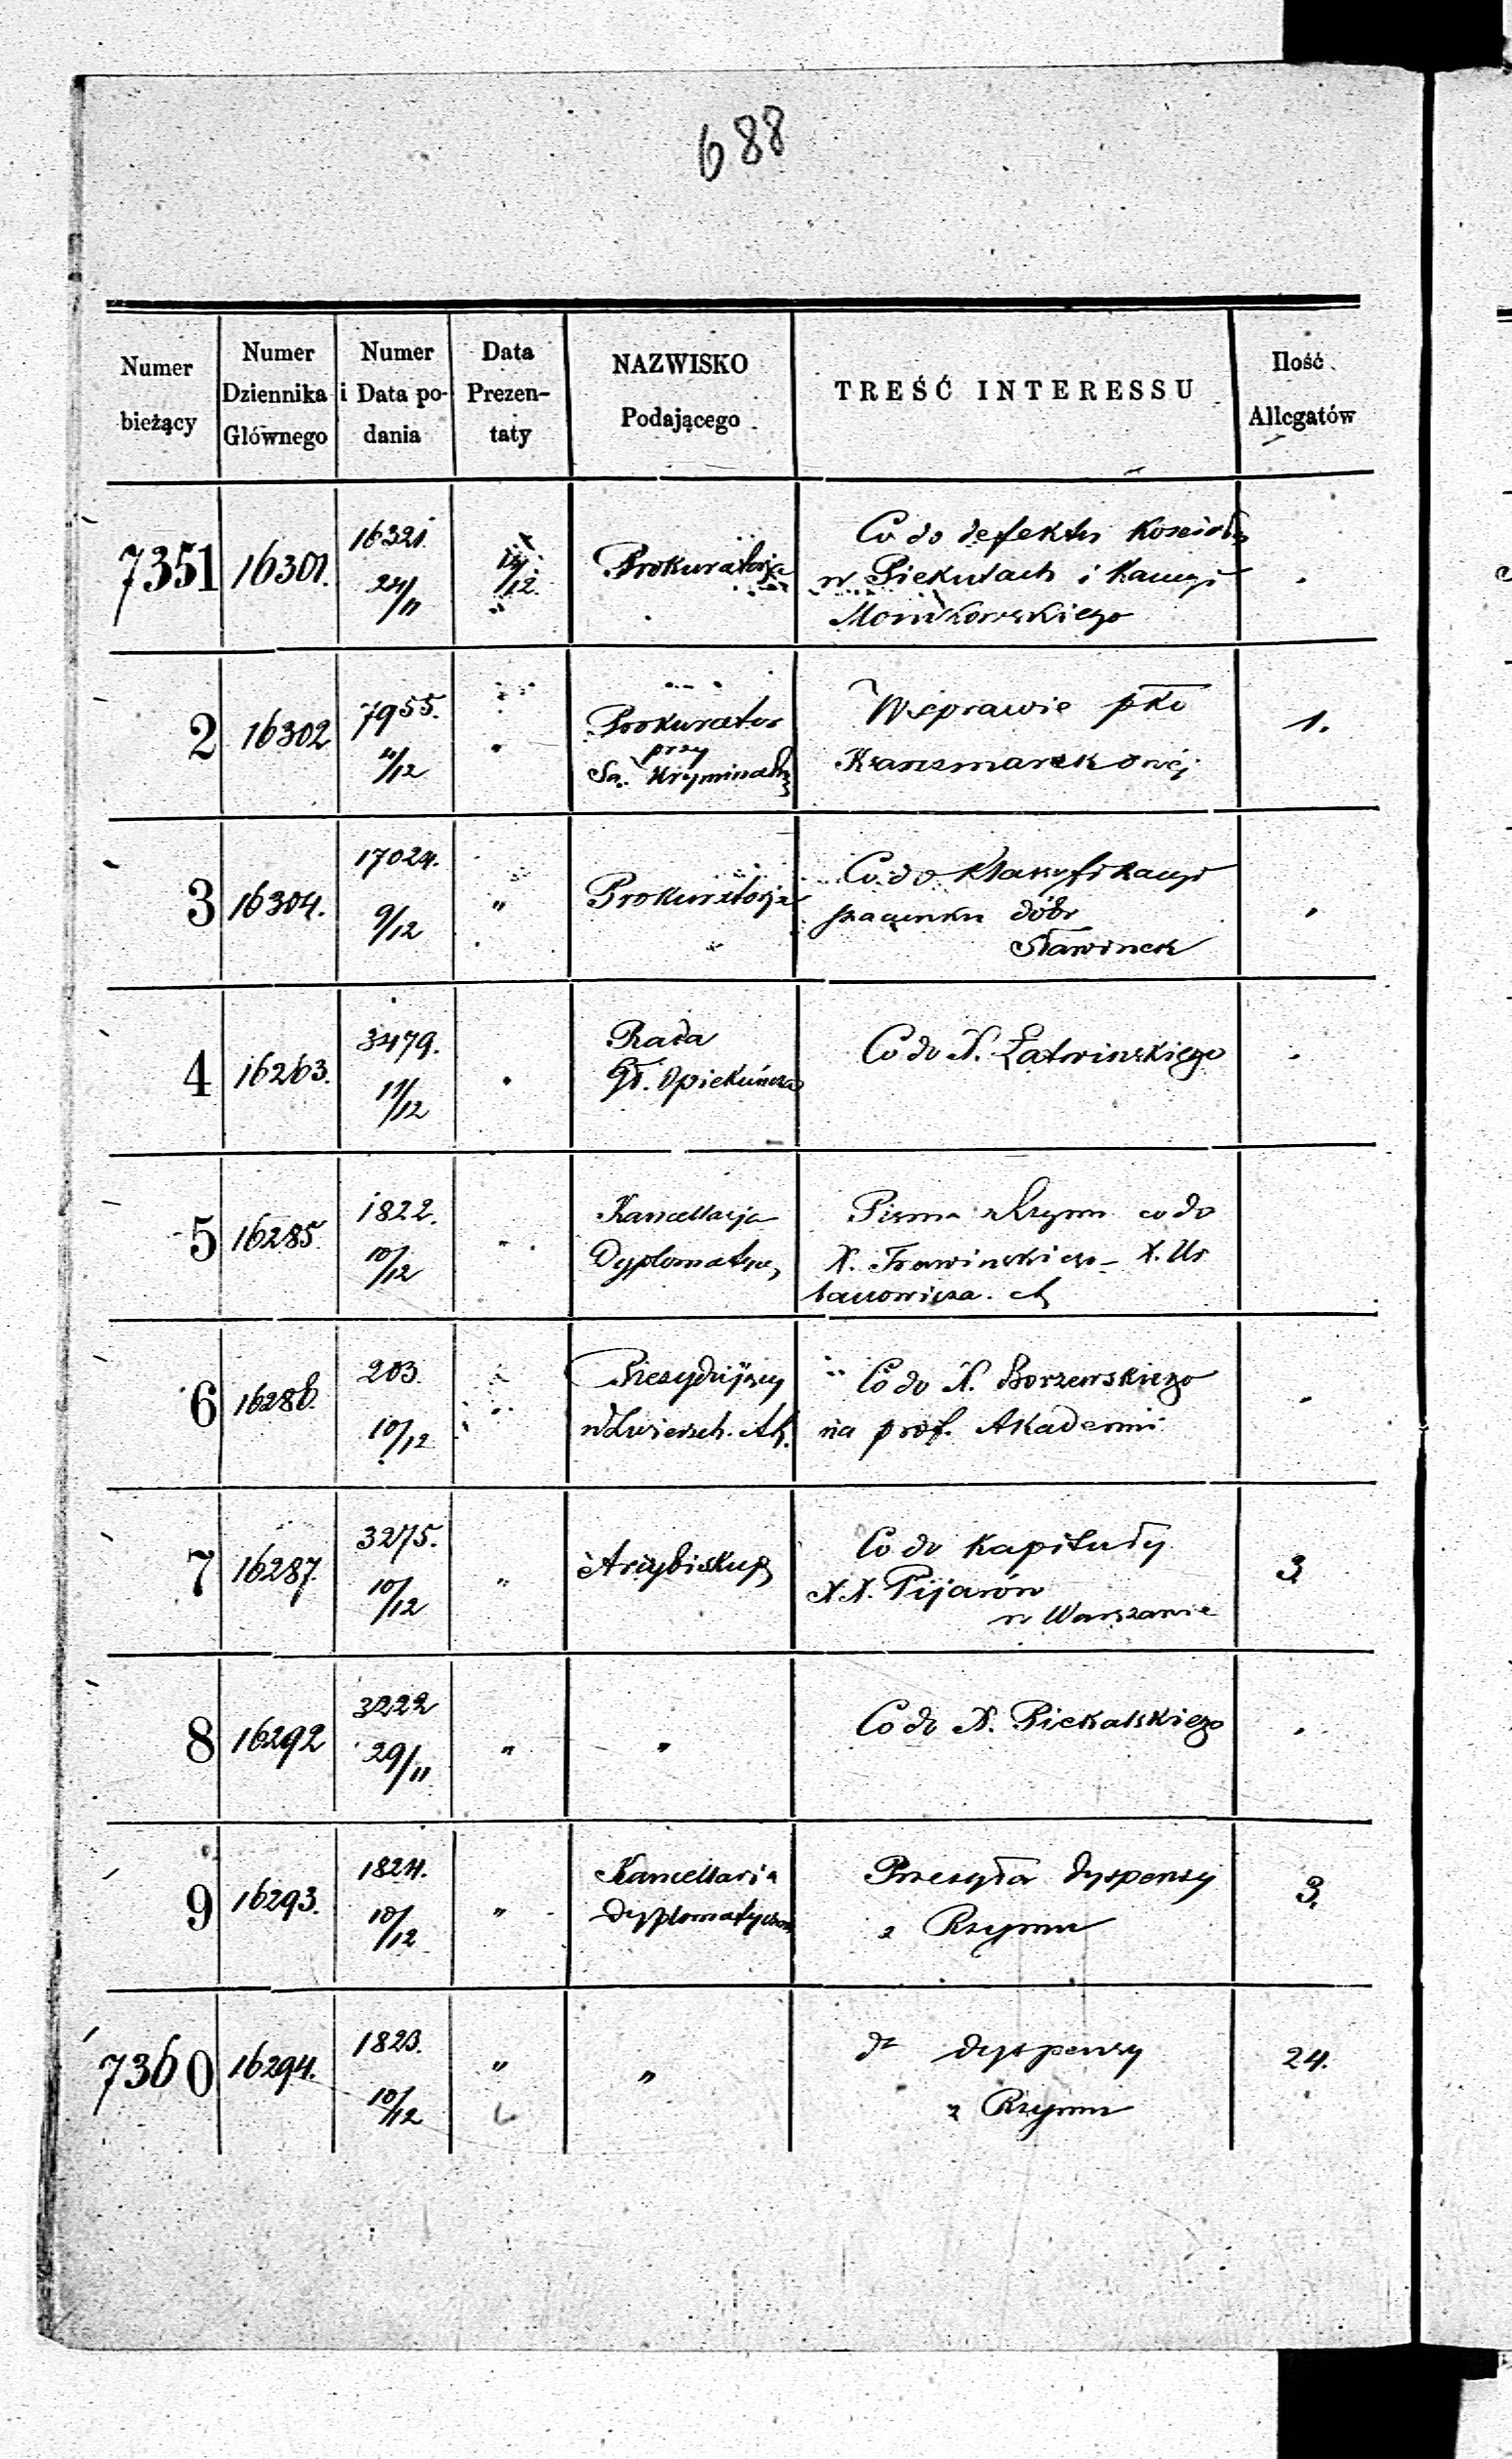 688
Numer bieżący | Numer Dziennika Głównego | Numer i Data podania | Data Prezentaty | NAZWISKO Podającego | TREŚĆ INTERESSU | Ilość Allegatów
7351 16301. 16321. 24/11 14/12. Prokuratorja Co do defektu Kościoła
w Piekutach i Kaucyi
Monikowskiego
2 16302 7955. 11/12 Prokurator W sprawie pko 1.
przy
Są. Kryminalny
3 16304. 17024. 9/12 " Prokuratorja Co do Klassyfikacyi
szacunku dóbr
Sławinek
4 16263. 3479. 11/12 Rada Co do X. Łatwinskiego
Gł. Opiekuńcza
5 16285. 1822. 10/12 " Kancellarja Pismo z Rzymu co do
Dyplomatycz. X. Trawinskiego X. Ur
banowicza
6 16286. 203. 10/12 Prezydujący Co do X. Borzewskiego
na prof. Akademii
7 16287. 3275. 10/12 " Arcybiskup Co do Kapituły 3
X.X. Pijarów
w Warszawie
8 16292 3222 29/11 " " Co do X. Piekalskiego
9 16293. 1824. 10/12 " Kancellaria Przesyła dyspensy 3.
Dyplomatyczna z Rzymu
7360 16294. 1823. 10/12 " " dto dyspensy 24.
z Rzymu